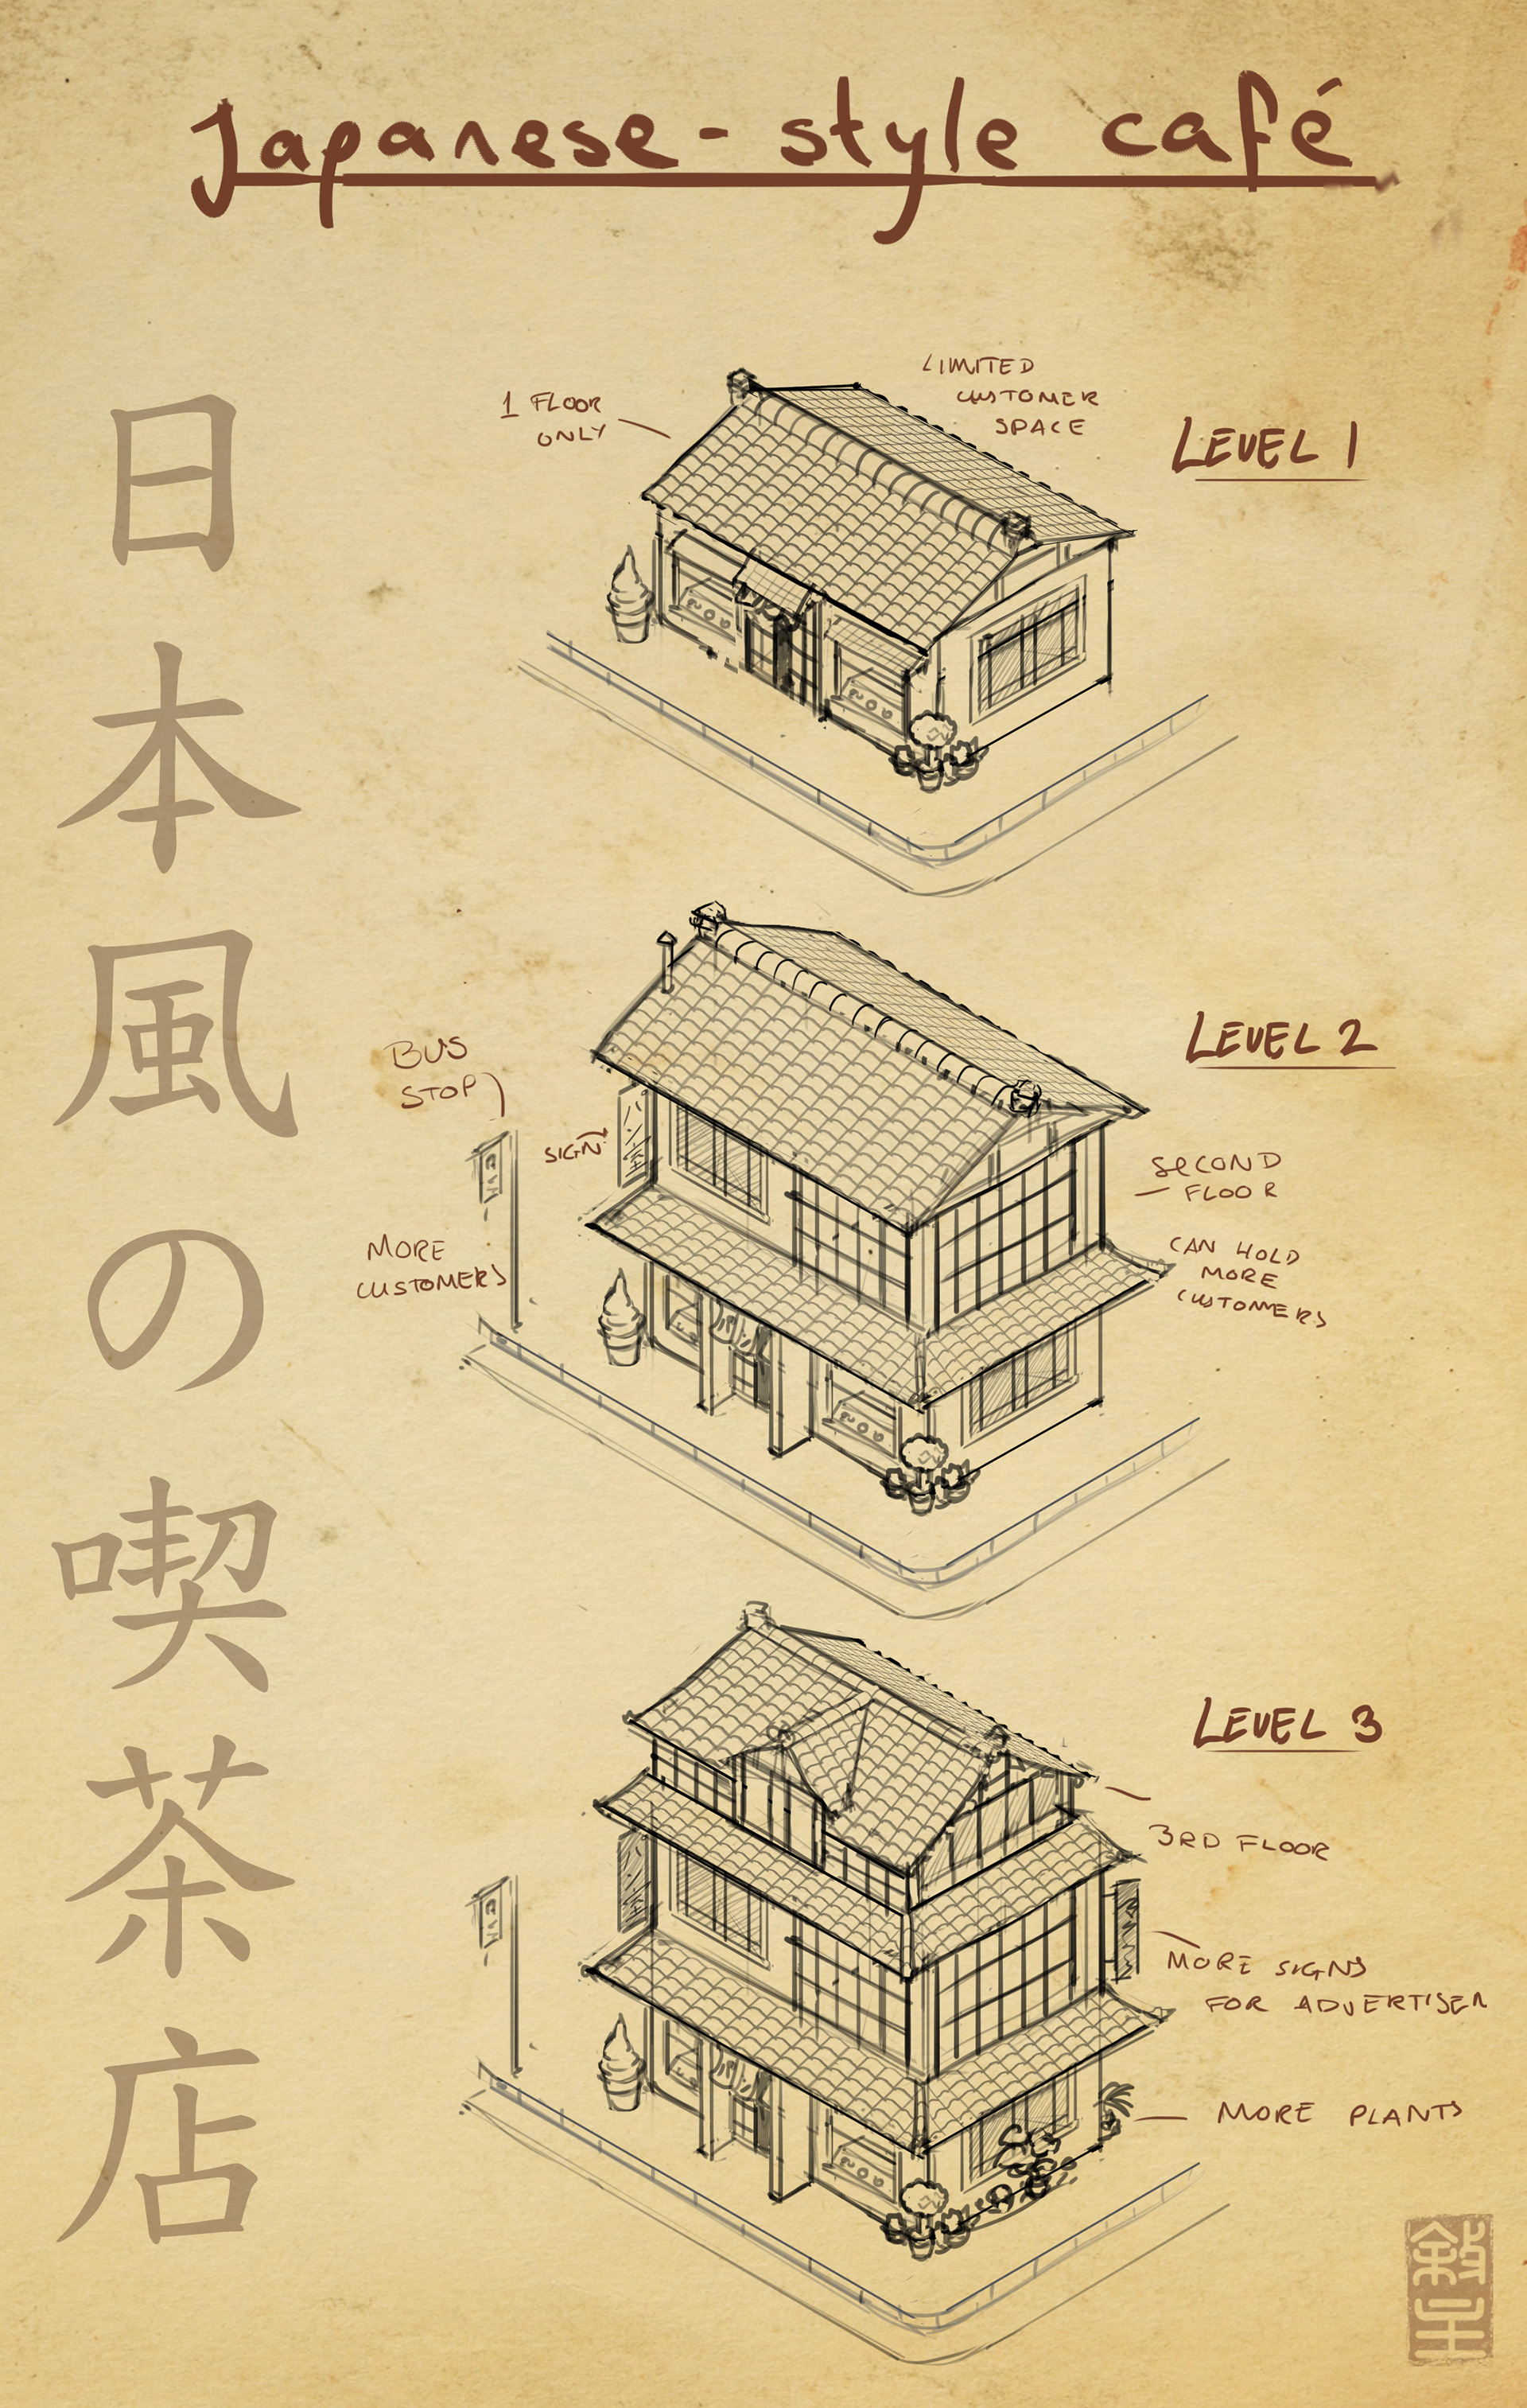 Japanese-style café
日本風の喫茶店
1 FLOOR
ONLY
LIMITED
CUSTOMER
SPACE
LEVEL 1
BUS
STOP
SIGN
MORE
CUSTOMERS
LEVEL 2
SECOND
FLOOR
CAN HOLD
MORE
CUSTOMERS
LEVEL 3
3RD FLOOR
MORE SIGNS
FOR ADVERTISER
MORE PLANTS